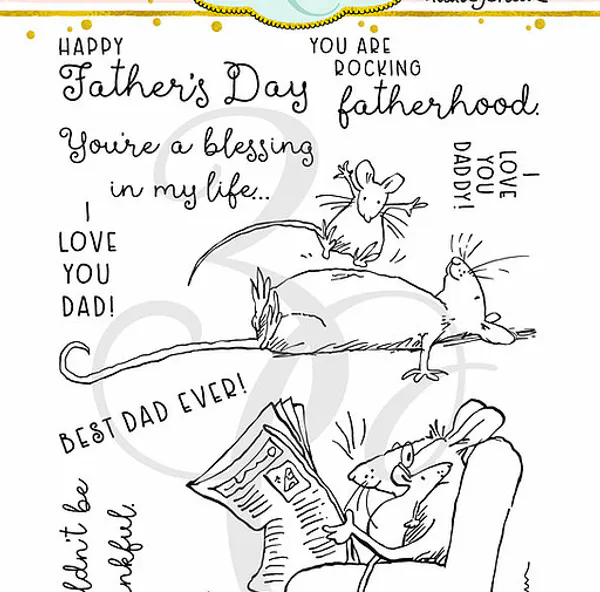 HAPPY
Father's Day
YOU ARE
ROCKING
fatherhood.
You're a blessing
in my life...
I
LOVE
YOU
DADDY!
I
LOVE
YOU
DAD!
BEST DAD EVER!
be